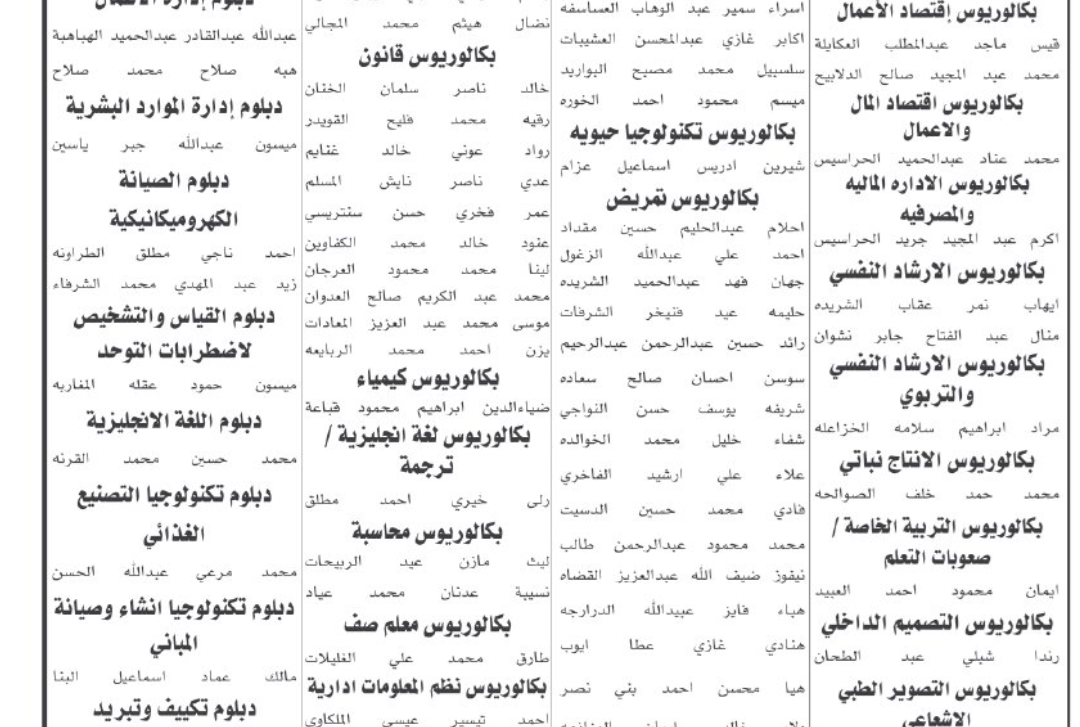 بكالوريوس إقتصاد الأعمال
قيس ماجد عبدالمطلب العكايلة
محمد عبد المجيد صالح الدلابيح
بكالوريوس اقتصاد المال
والاعمال
محمد عناد عبدالحميد الحراسيس
بكالوريوس الاداره الماليه
والمصرفيه
اكرم عبد المجيد جريد الحراسيس
بكالوريوس الارشاد النفسي
ايهاب نمر عقاب الشريده
منال عبد الفتاح جابر نشوان
بكالوريوس الارشاد النفسي
والتربوي
مراد ابراهيم سلامه الخزاعله
بكالوريوس الانتاج نباتي
محمد حمد خلف الصوالحه
بكالوريوس التربية الخاصة /
صعوبات التعلم
ايمان محمود احمد العبيد
بكالوريوس التصميم الداخلي
رندا شبلي عبد الطحان
بكالوريوس التصوير الطبي
الاشعاعي
اسراء سمير عبد الوهاب العساسفه
اكابر غازي عبدالمحسن العشيبات
سلسبيل محمد مصبح البواريد
ميسم محمود احمد الخوره
بكالوريوس تكنولوجيا حيويه
شيرين ادريس اسماعيل عزام
بكالوريوس تمريض
احلام عبدالحليم حسين مقداد
احمد علي عبدالله الزغول
جهان فهد عبدالحميد الشريده
حليمه عيد فنيخر الشرفات
رائد حسين عبدالرحمن عبدالرحيم
سوسن احسان صالح سعاده
شريفه يوسف حسن النواجي
شفاء خليل محمد الخوالده
علاء علي ارشيد الفاخري
فادي محمد حسين الدسيت
محمد محمود عبدالرحمن طالب
نيفوز ضيف الله عبدالعزيز القضاه
هباء فايز عبيدالله الدرارجه
هنادي غازي عطا ايوب
هيا محسن احمد بني نصر
نضال هيثم محمد المجالي
بكالوريوس قانون
خالد ناصر سلمان الخنان
رقيه محمد فليح القويدر
رواد عوني خالد غنايم
عدي ناصر نايش المسلم
عمر فخري حسن سنتريسي
عنود خالد محمد الكفاوين
لينا محمد محمود العرجان
محمد عبد الكريم صالح العدوان
موسى محمد عبد العزيز المعادات
يزن احمد محمد الربايعه
بكالوريوس كيمياء
ضياءالدين ابراهيم محمود قباعة
بكالوريوس لغة انجليزية /
ترجمة
رلى خيري احمد مطلق
بكالوريوس محاسبة
ليث مازن عيد الربيحات
نسيبة عدنان محمد عياد
بكالوريوس معلم صف
طارق محمد علي الغليلات
بكالوريوس نظم المعلومات ادارية
احمد تيسير عيسى الملكاوي
دبلوم إدارة الأعمال
عبدالله عبدالقادر عبدالحميد الهباهبة
هبه صلاح محمد صلاح
دبلوم إدارة الموارد البشرية
ميسون عبدالله جبر ياسين
دبلوم الصيانة
الكهروميكانيكية
احمد ناجي مطلق الطراونه
زيد عبد المهدي محمد الشرفاء
دبلوم القياس والتشخيص
لاضطرابات التوحد
ميسون حمود عقله المغاربه
دبلوم اللغة الانجليزية
محمد حسين محمد القرنه
دبلوم تكنولوجيا التصنيع
الغذائي
محمد مرعي عبدالله الحسن
دبلوم تكنولوجيا انشاء وصيانة
المباني
مالك عماد اسماعيل البنا
دبلوم تكييف وتبريد